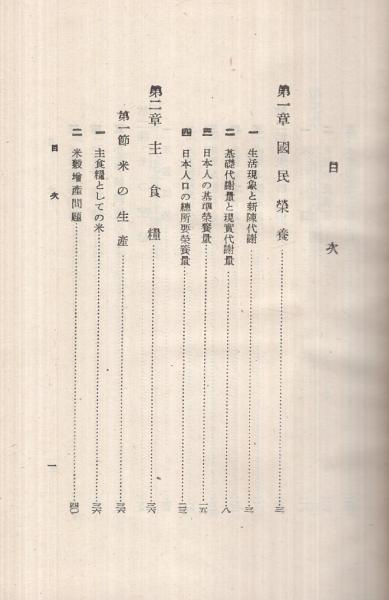 目次
第一章 國民榮養……三
一 生活現象と新陳代謝……三
二 基礎代謝量と現實代謝量……八
三 日本人の基準榮養量……一五
四 日本人口の總所要榮養量……
第二章 主食糧……二六
第一節 米の生産……二六
一 主食糧としての米……二六
二 米穀增産問題……四〇
目次
一